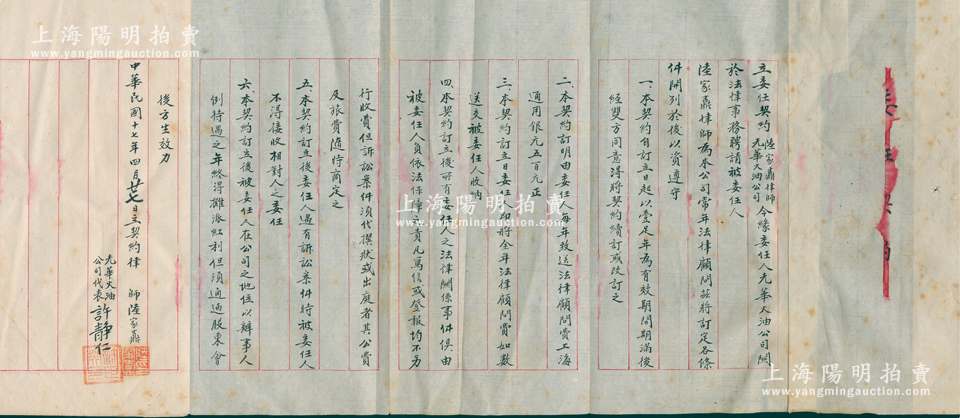 委任契約
立委任契約 陸家鼐律師 光華火油公司 今緣委任人光華火油公司關
於法律事務聘請被委任人
陸家鼐律師為本公司常年法律顧問茲將訂定各條
件開列於後以資遵守
一、本契約自訂立日起以壹足年為有效期間期滿後
經雙方同意得將契約續訂或改訂之
二、本契約訂明由委任人每年致送法律顧問費上海
通用銀元五百元正
三、本契約訂立日委任人即將全年法律顧問費如數
送交被委任人收納
四、本契約訂立後所有委任人之法律關係事件俱由
被委任人負依法保障之責凡寫信或登報均不另
行收費但訴訟案件須代撰狀或出庭者其公費
及旅費隨時商定之
五、本契約訂立後委任人遇有訴訟案件時被委任人
不得接收相對人之委任
六、本契約訂立後被委任人在公司之地位以辦事人
例待遇之年終得攤派紅利但須通過股東會
後方生效力
中華民國十七年四月廿七日立契約律師陸家鼐
光華火油公司代表許靜仁
上海陽明拍賣
www.yangmingauction.com
上海陽明拍賣
www.yangmingauction.com
上海陽明拍賣
www.yangmingauction.com
上海陽明拍賣
www.yangmingauction.com